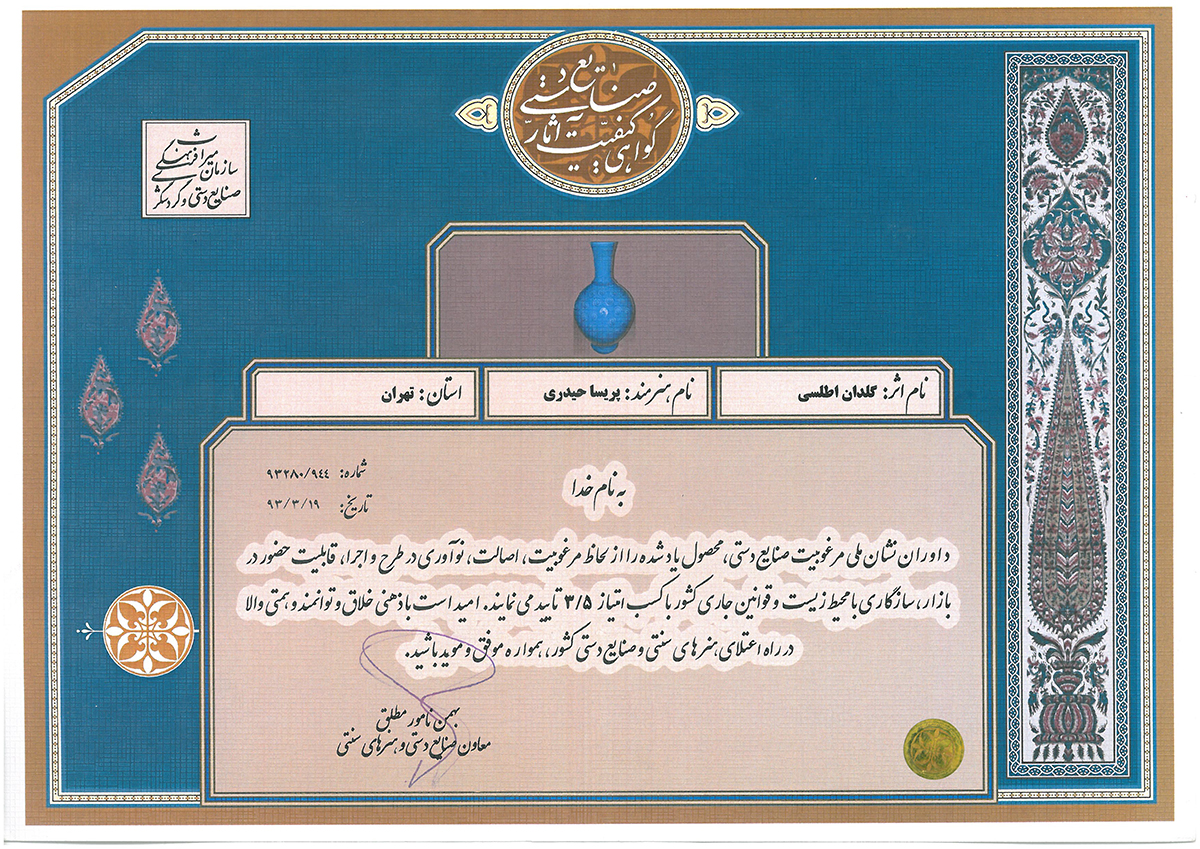 گواهی کیفیت آثار
صنایع دستی
سازمان میراث فرهنگی
صنایع دستی و گردشگری
نام اثر: گلدان اطلسی
نام هنرمند: پریسا حیدری
استان: تهران
شماره: ۹۳۲۸۰/۹۴۴
تاریخ: ۹۳/۳/۱۹
به نام خدا
داوران نشان ملی مرغوبیت صنایع دستی، محصول یاد شده را از لحاظ مرغوبیت، اصالت، نوآوری در طرح و اجرا، قابلیت حضور در
بازار، سازگاری با محیط زیست و قوانین جاری کشور با کسب امتیاز ۳/۵ تایید می نمایند. امید است با ذهنی خلاق و توانمند و همتی والا
در راه اعتلای هنرهای سنتی و صنایع دستی کشور، همواره موفق و موید باشید.
بهمن نامور مطلق
معاون صنایع دستی و هنرهای سنتی